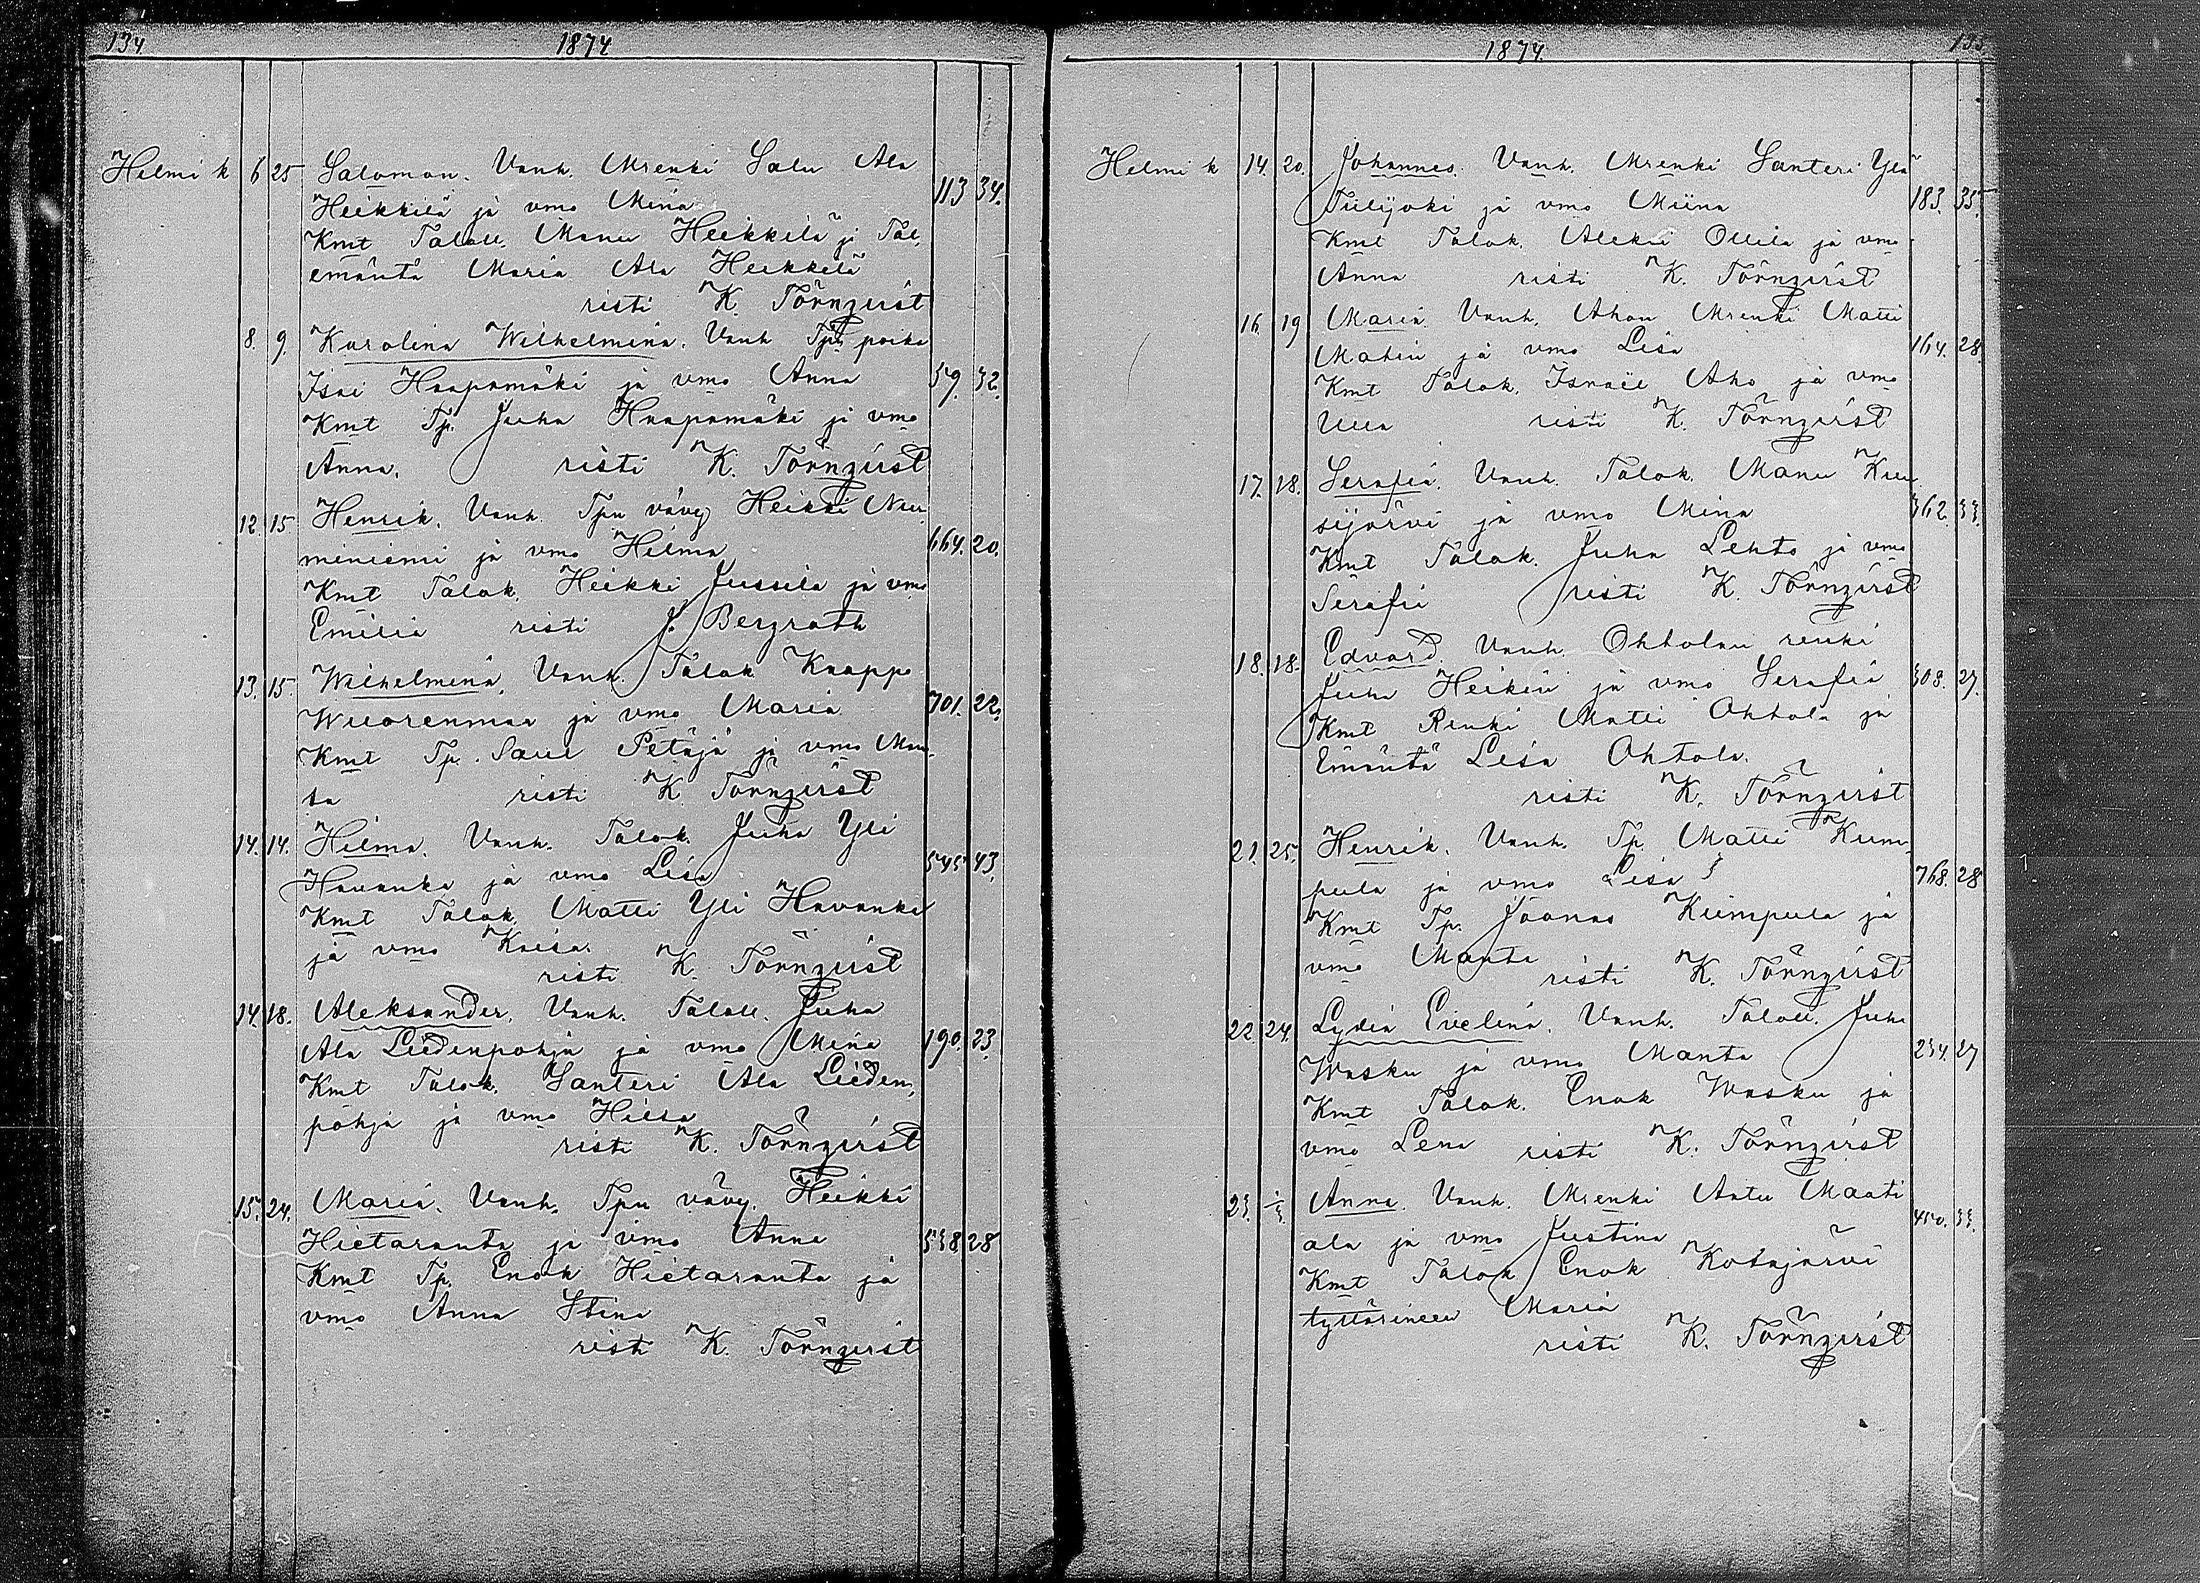 134. 1874
Helmi k 6 25 Salomon. Vanh. Mrenki Salu Ala
Heikkilä ja vmo Mina 113 34.
Kmt Talall. Manu Heikkilä ja Tal.
emäntä Maria Ala Heikkilä
risti K. Törnqvist
8. 9. Karolina Wilhelmina. Vanh Tp poika
Isai Haapamäki ja vmo Anna 59. 32.
Kmt Tp. Juha Haapamäki ja vmo
Anna. risti K. Törnqvist
12. 15 Henrik. Vanh. Tpn vävy Heikki Nur
miniemi ja vmo Hilma 664. 20.
Kmt Talok. Heikki Jussila ja vmo
Emilia risti J. Bergroth
13. 15. Wilhelmina, Vanh. Talok Kaappo
Wuorenmaa ja vmo Maria 701. 22.
Kmt Tp. Petäjä ja vmo Man
ta risti K. Törnqvist
14. 14. Hilma. Vanh. Talok. Juha Yli
Havanka ja vmo Lisa 545 43.
Kmt Talok. Matti Yli Havanka
ja vmo Kaisa.
risti K. Törnqvist
14. 18. Aleksander. Vanh. Talall. Juha
Ala Liedenpohja ja vmo Mina 190. 23.
Kmt Talok. Santeri Ala Lieden,
pohja ja vmo Hilda
risti K. Törnqvist
15. 24. Maria. Vanh. Tpn vävy. Heikki
Hietaranta ja vmo Anna 538 28
Kmt Tp. Enok Hietaranta ja
vmo Anna Stina
risti K. Törnqvist
1874. 135
Helmi k 14. 20. Johannes. Vanh. Mrenki Santeri Ylä
Tulijoki ja vmo Miina 183. 35
Kmt Talok. Aleksi Ollila ja vmo
Anna risti K. Törnqvist
16. 19 Maria. Vanh. Ahon Mrenki Matti
Matin ja vmo Lisa 164. 28.
Kmt Talok. Israel Aho ja vmo
Ulla risti K. Törnqvist
17. 18. Serafia. Vanh. Talok. Manu Kuu
sijärvi ja vmo Mina 362. 33.
Kmt Talok. Juha Lehto ja vmo
Serafia risti K. Törnqvist
18. 18. Edvard. Vanh. Ohtolan renki
Juha Heikin ja vmo Serafia 308. 27.
Kmt Renki Matti Ohtola ja
Emäntä Lisa Ohtola.
risti K. Törnqvist
21. 25. Henrik. Vanh. Tp. Matti Kum
pula ja vmo Lisa 768. 28
Kmt Tp. Joonas Kumpula ja
vmo Manta risti K. Törnqvist
22. 24. Lydia Evelina. Vanh. Talall. Juha
Wasku ja vmo Manta 234. 27
Kmt Talok. Enok Wasku ja
vmo Lena risti K. Törnqvist
23. 1/3. Anna. Vanh. Mrenki Antu Maati
ala ja vmo Justina 450. 33.
Kmt Talok Enok Kotajärvi
tyttärineen Maria
risti K. Törnqvist